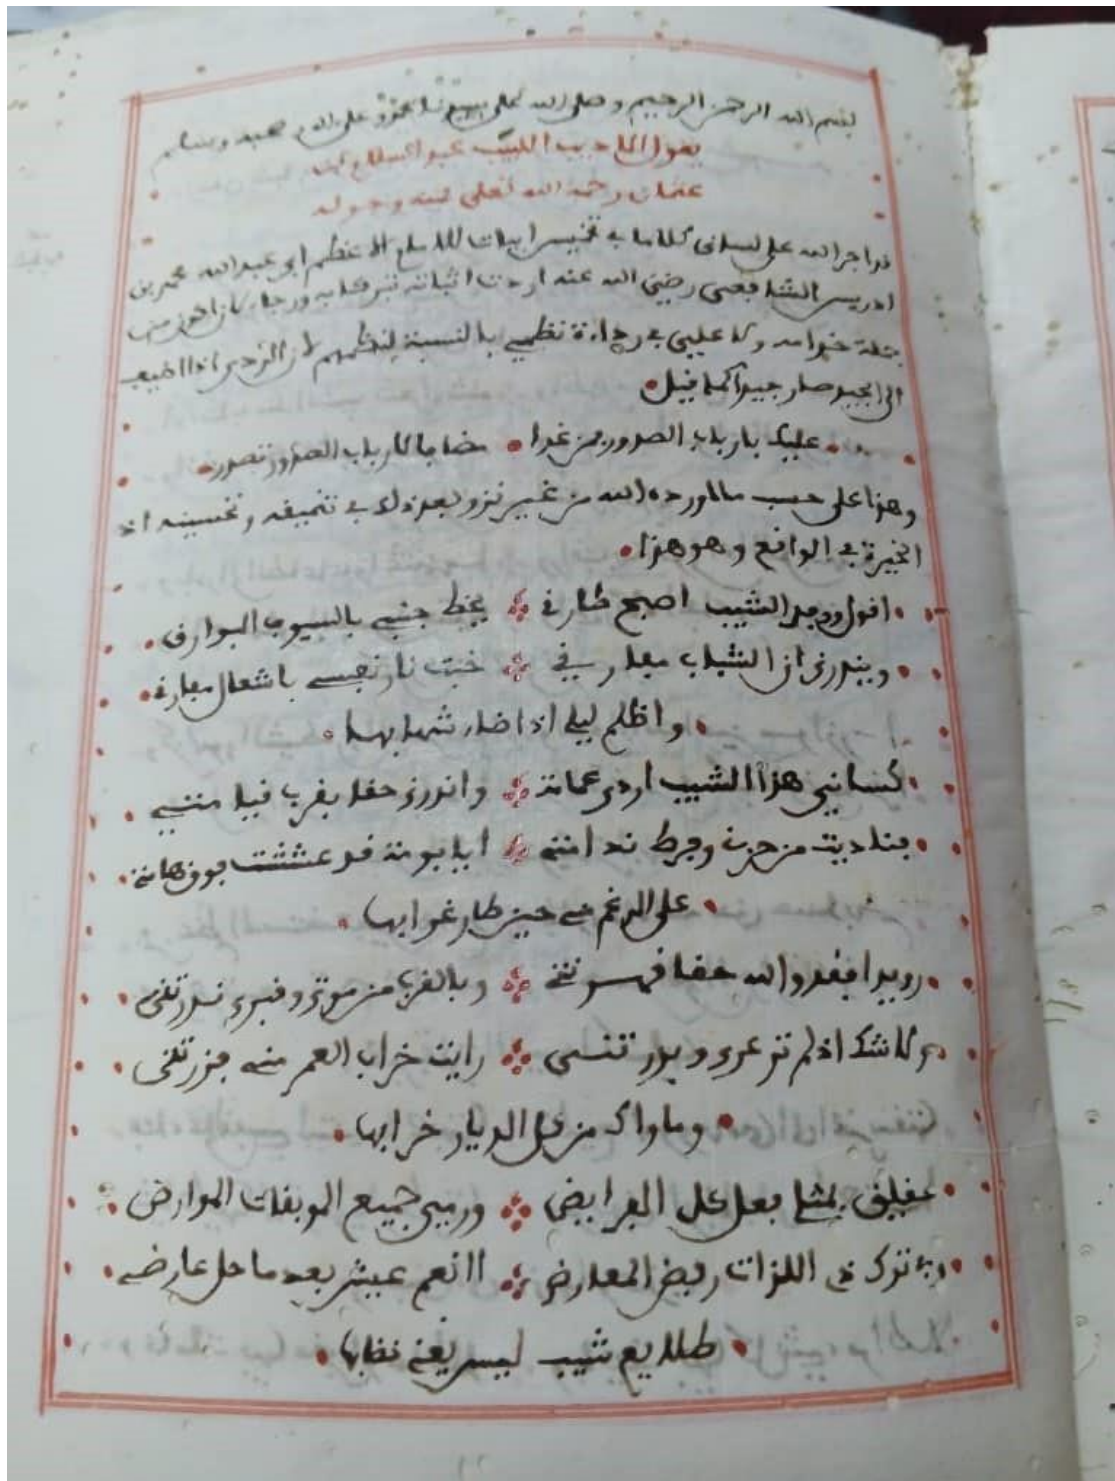 بسم الله الرحمن الرحيم وصلى الله على سيدنا محمد وعلى اله وصحبه وسلم
يقول الاديب اللبيب عبد السلام ابن
عثمان رحمه الله تعلى بمنه وحوله
قد اجرا الله على لسانى كلاما في تخميس ابيات للامام الاعظم ابي عبد الله محمد بن
ادريس الشافعى رضي الله عنه اردت اثباته تبركا به ورجاء كان اكون من
جملة خدامه ولا علي في رداءة نظمي بالنسبة لنظمهم لان الردى اذا اضيف
الى الجيد صار جيدا كما قيل
عليك بارباب الصدور من غدا مضافا لارباب الصدور تصدر
وهذا على حسب ما اورده الله من غير تزو بعد ذلك في تنميقه وتحسينه اذ
الخيرة في الواقع وهو هذا
اقول وجد الشيب اصبح طارفي يخط جنبي بالسيوف البوارق
وينذرنى ان الشباب مفارفي خبت نار نفسي باشعال مفارفي
واظلم ليلي اذ اضاء شهابها
كسانى هذا الشيب اردى عمامة وانذرنى حقا بقرب قيامتي
فناديت من حزنى وفرط ندامتي ايا بومة قد عششت فوق هامتي
على الرغم مني حين طار غرابها
رويدا فقد والله حقا قهرتني وبالقرب من موتى وقبرى نذرتنى
ولا شك اذ لم ترعوى وبور تنسى رايت خراب العمر منى فزرتنى
وماواك من كل الديار خرابها
عقلى بمثلي فعل كل الفرايض ورمي جميع الموبقات العوارض
وفي ترك ذى اللذات رفض المعارض اانعم عيشا بعد ما حل عارضي
طلايع شيب ليس يغني خضابها